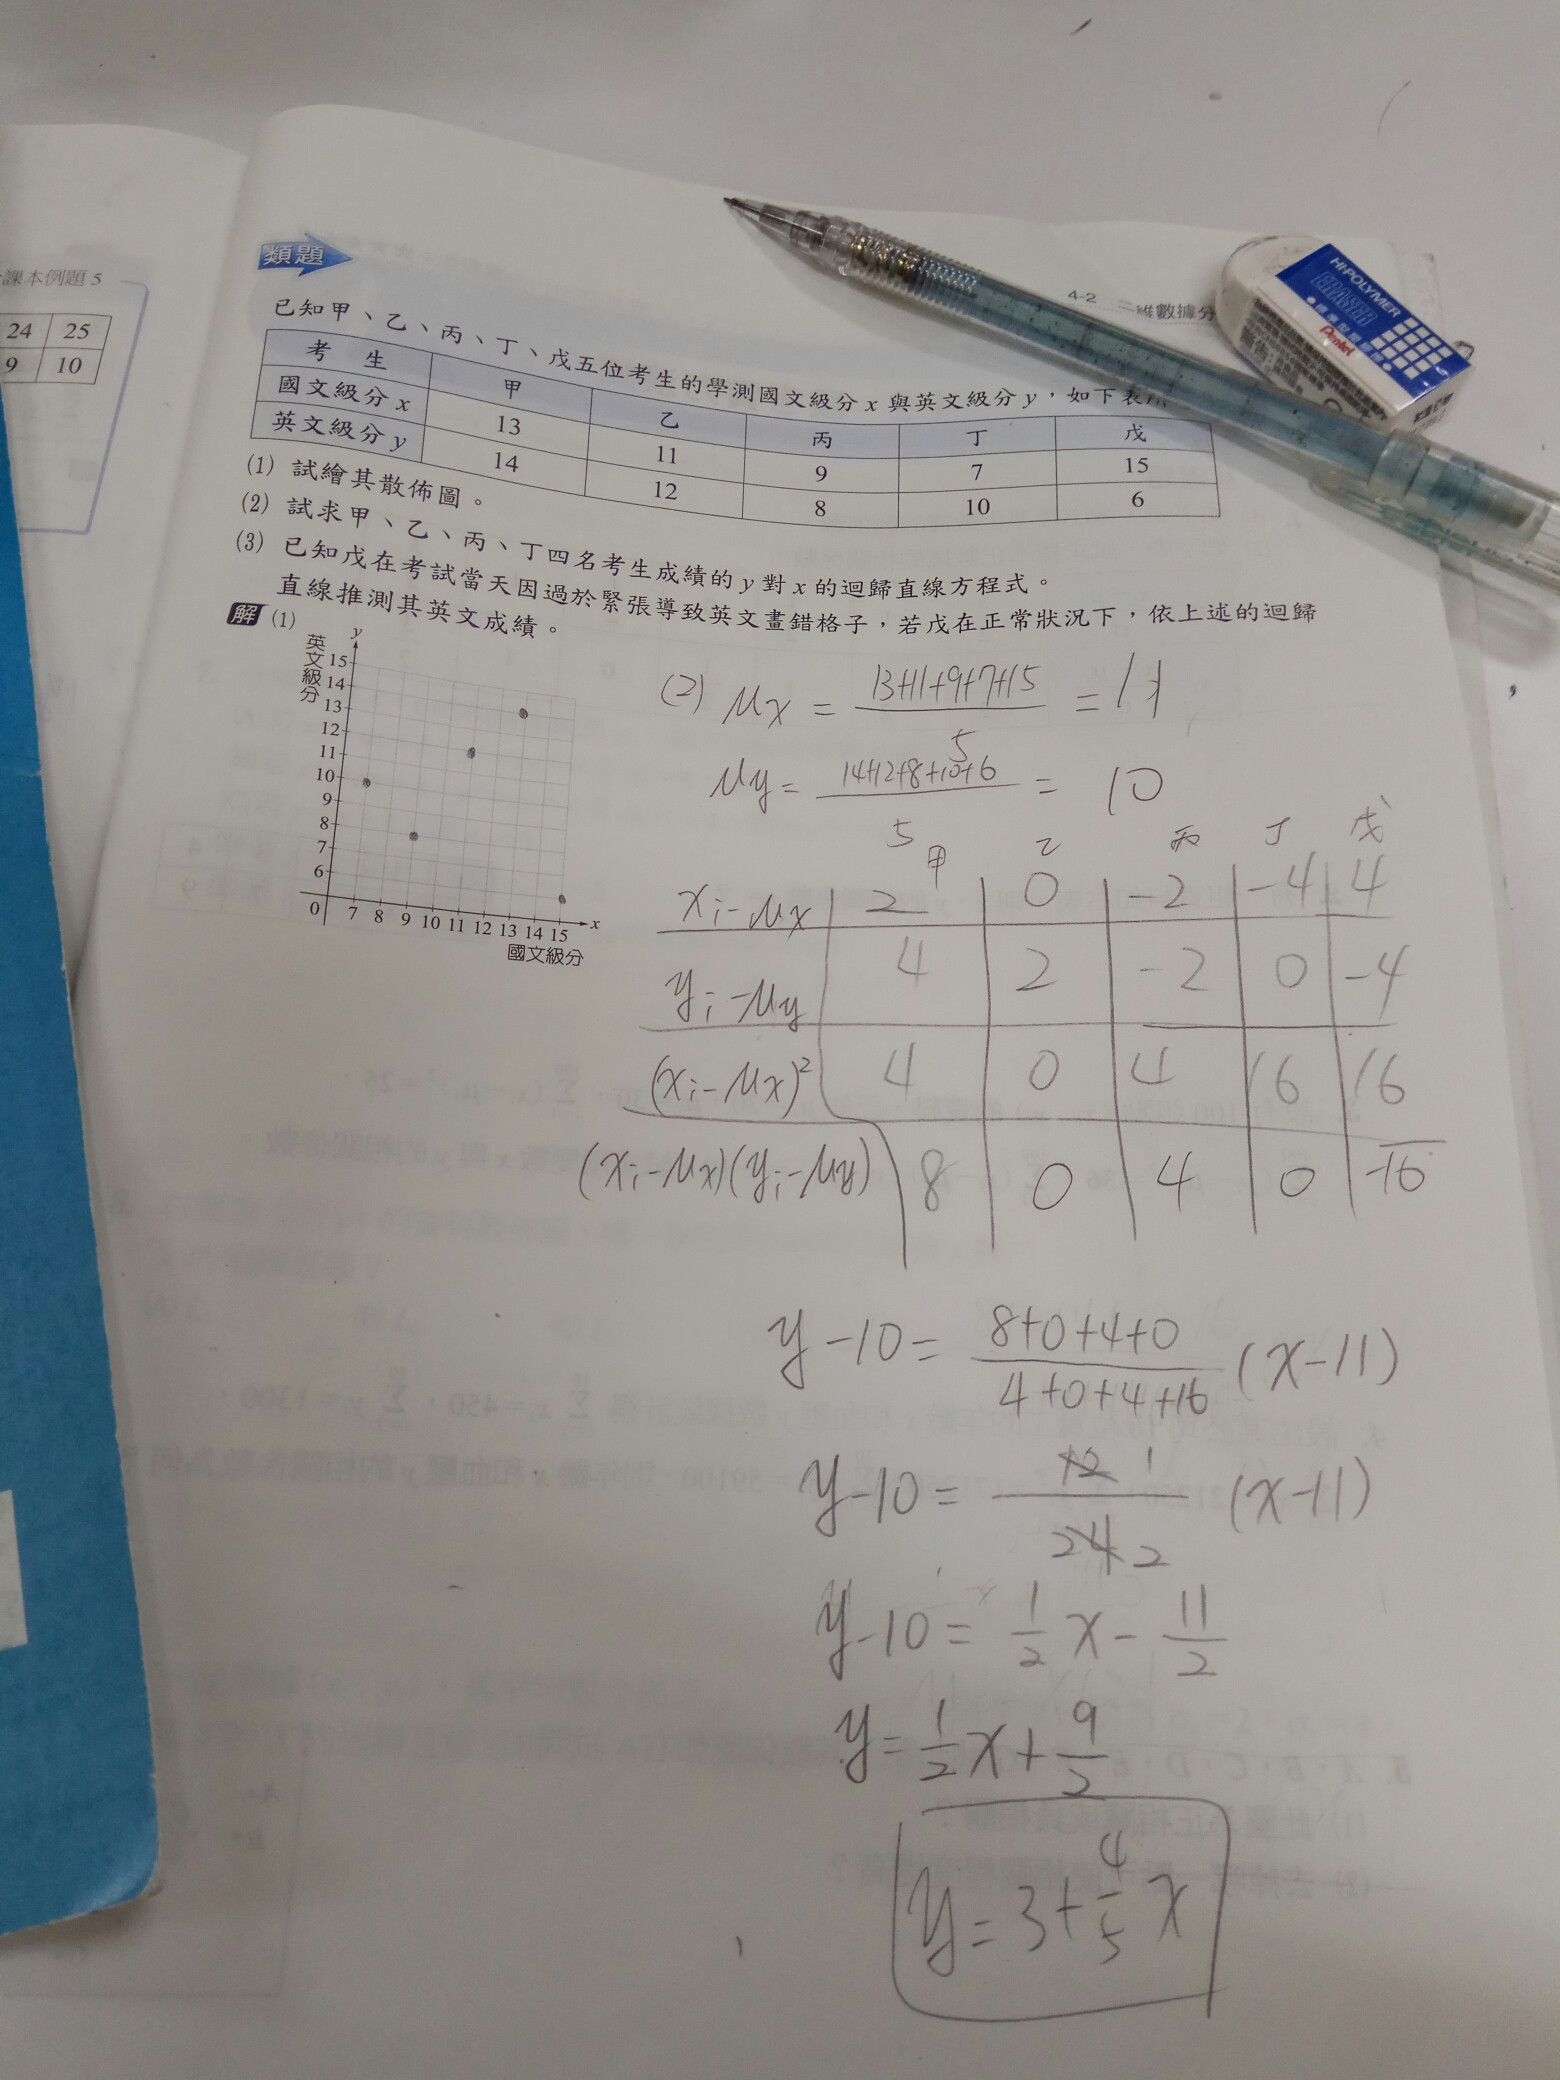 類題
4-2 二維數據分
課本例題 5
24 25
9 10
已知甲、乙、丙、丁、戊五位考生的學測國文級分 x 與英文級分 y,如下表所
考 生 甲 乙 丙 丁 戊
國文級分 x 13 11 9 7 15
英文級分 y 14 12 8 10 6
(1) 試繪其散佈圖。
(2) 試求甲、乙、丙、丁四名考生成績的 y 對 x 的迴歸直線方程式。
(3) 已知戊在考試當天因過於緊張導致英文畫錯格子,若戊在正常狀況下,依上述的迴歸
直線推測其英文成績。
解 (1)
英文級分 y
15
14
13
12
11
10
9
8
7
6
0 7 8 9 10 11 12 13 14 15 x
國文級分
(2) μx = 13+11+9+7+15 / 5 = 11
μy = 14+12+8+10+6 / 5 = 10
甲 乙 丙 丁 戊
xi-μx 2 0 -2 -4 4
yi-μy 4 2 -2 0 -4
(xi-μx)² 4 0 4 16 16
(xi-μx)(yi-μy) 8 0 4 0 -16
y-10 = 8+0+4+0 / 4+0+4+16 (x-11)
y-10 = 12 1 / 24 2 (x-11)
y-10 = 1/2 x - 11/2
y = 1/2 x + 9/2
y = 3 + 4/5 x
HI-POLYMER
ERASER
Pentel